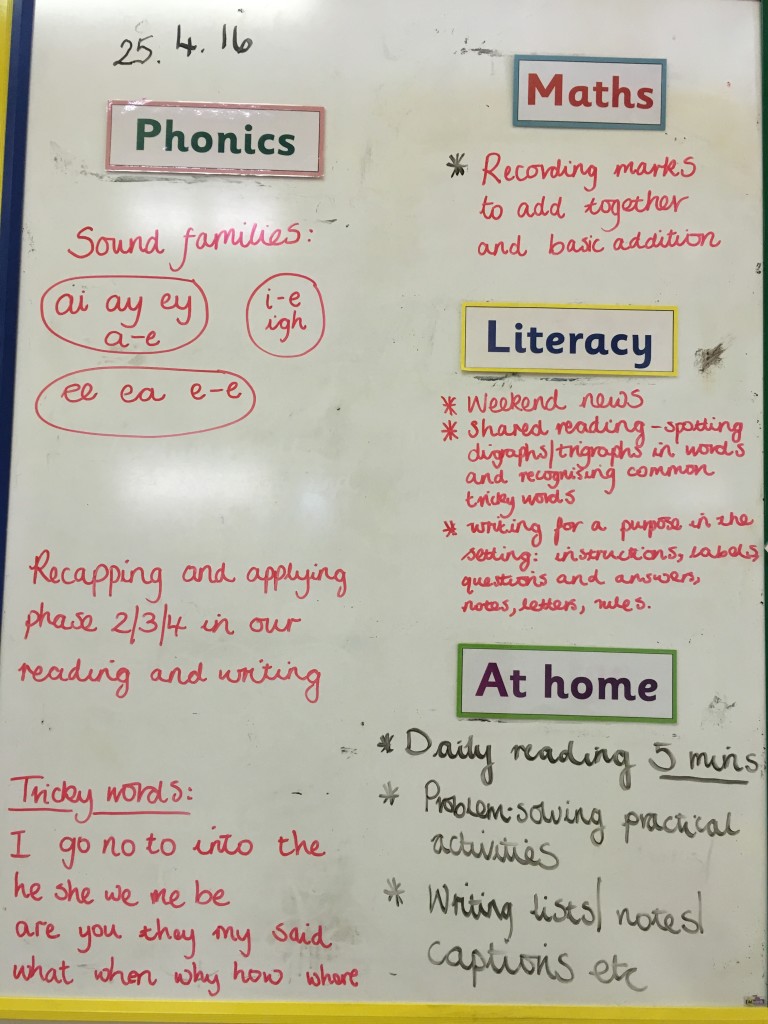 25.4.16
Phonics
Sound families:
ai ay ey
a-e
i-e
igh
ee ea e-e
Recapping and applying
phase 2/3/4 in our
reading and writing
Tricky words:
I go no to into the
he she we me be
are you they my said
what when why how where
Maths
* Recording marks
to add together
and basic addition
Literacy
* Weekend news
* Shared reading - spotting
digraphs/trigraphs in words
and recognising common
tricky words
* writing for a purpose in the
setting: instructions, labels,
questions and answers,
notes, letters, rules.
At home
* Daily reading 5 mins
* Problem-solving practical
activities
* Writing lists/notes/
captions etc